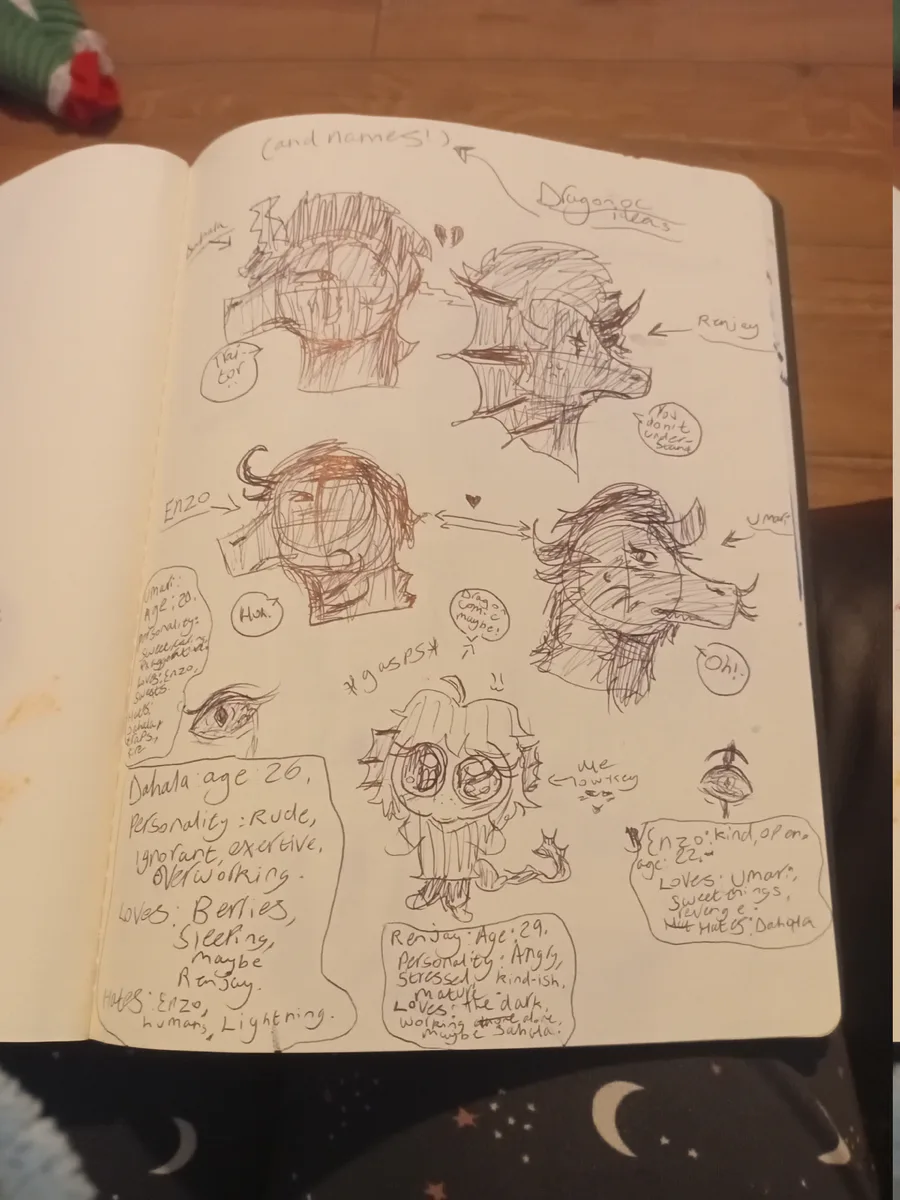 (and names!)
Dragon oc
ideas
Dahala
Trai-
tor
!!
Renjay
You
don't
under-
stand
Enzo
Huh.
Umari
Oh!
Umari:
Age: 20,
Personality:
Sweet,
Loves: Enzo,
sweets.
Hates:
Dahala,
*gasps*
Drag oc
comic
maybe!
Me
Dahala age: 26,
Personality: Rude,
ignorant, exertive,
overworking.
Loves: Berries,
Sleeping,
maybe
Renjay.
Hates: Enzo,
humans, Lightning.
Renjay: Age: 29,
Personality: Angry,
stressed, kind-ish,
mature.
Loves: the dark,
working alone,
maybe Dahala.
Enzo: kind, open.
age: 22.
Loves: Umari,
sweet things,
revenge.
Hates: Dahala